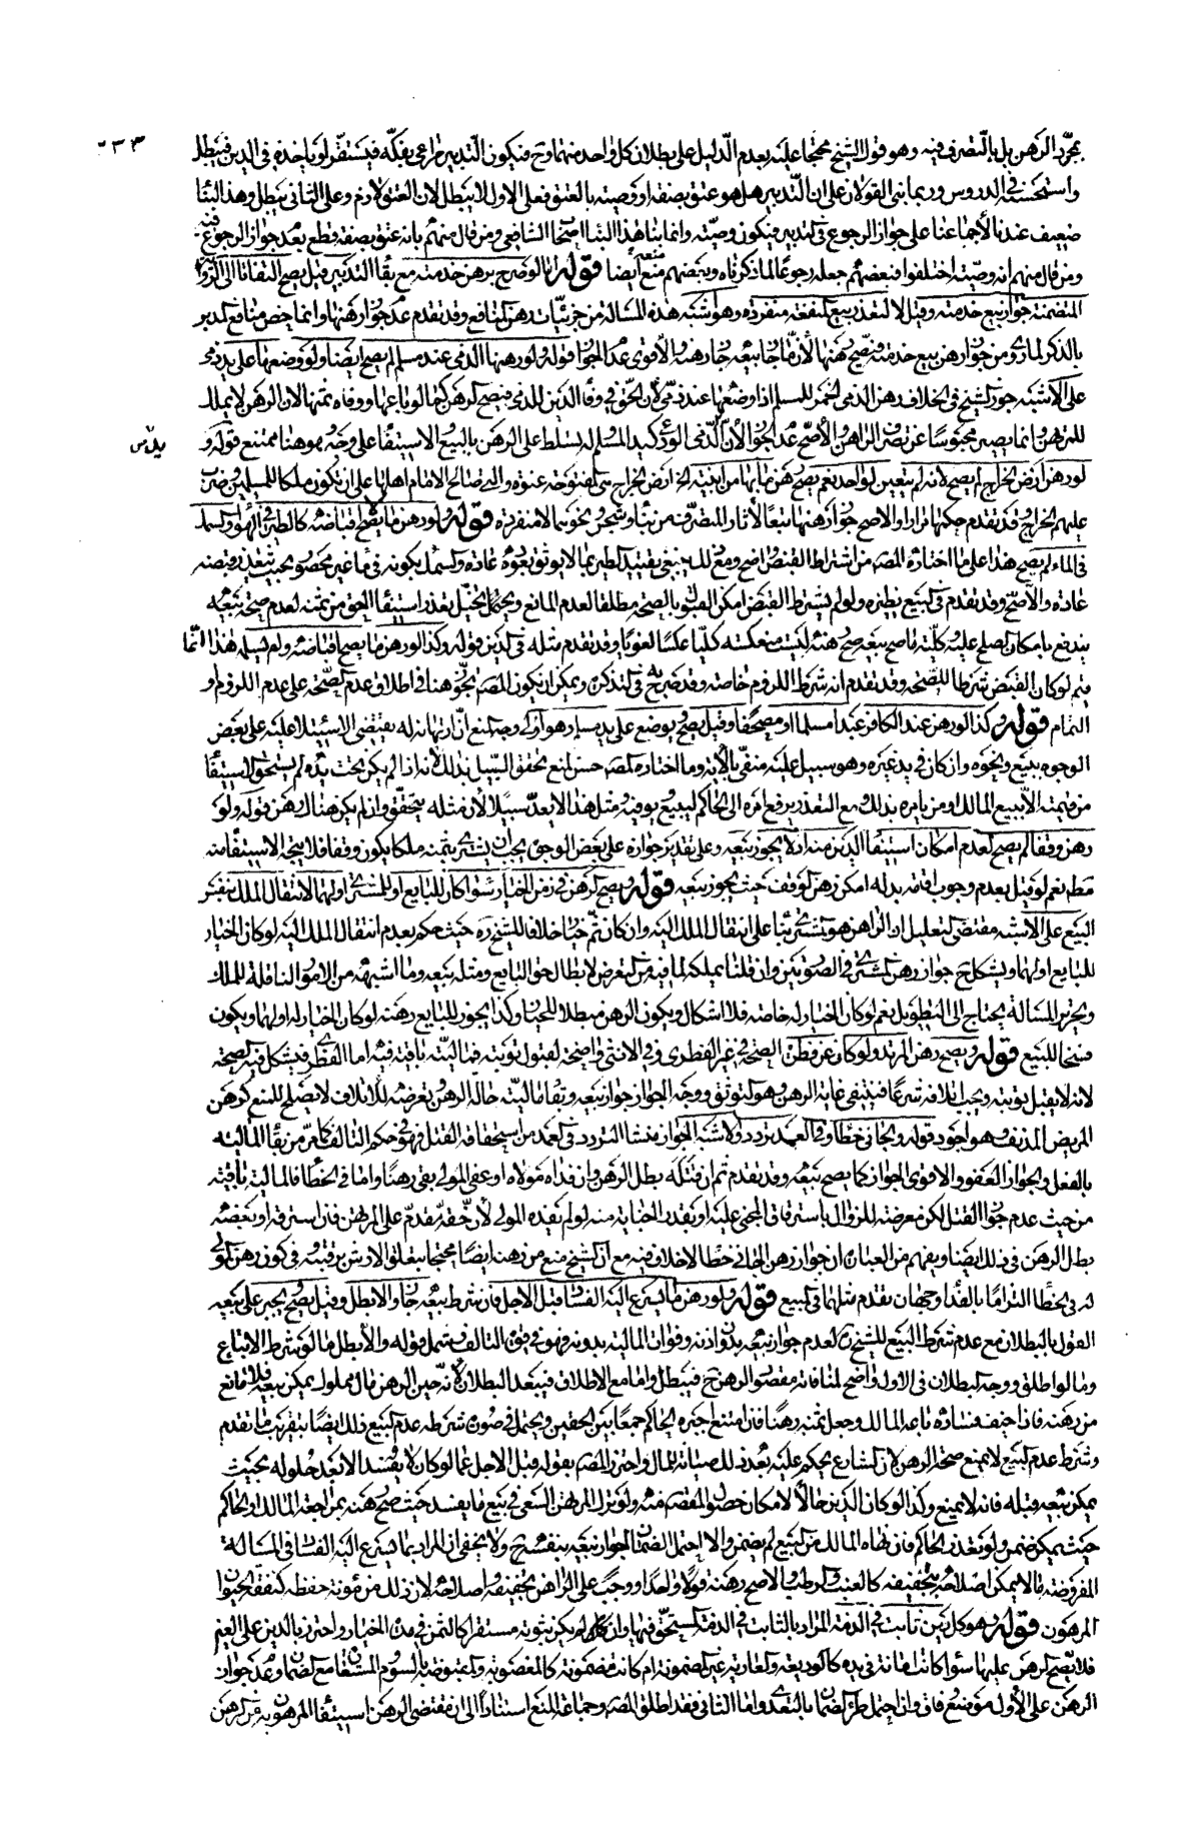 ٢٣٣
بمجرّد الرهن بل بالتصرف فيه وهو قول الشيخ محتجا عليه بعدم الدليل على بطلان كل واحد منهما وح فيكون التدبير مراعى بفكّه فيستقر او ياخذه فى الدين فيبطل
واستحسنه فى الدروس وربما بنى القولان على ان التدبير هل هو عتق بصفة او وصيته بالعتق فعلى الاول لا يبطل لان العتق لازم وعلى الثانى يبطل وهذا البناء
ضعيف عندنا لاجماعنا على جواز الرجوع فى التدبير فيكون وصيّته وانما بنا هذا البناء اصحاب الشافعى ومن قال منهم بانه عتق بصفة قطع بعدم جواز الرجوع فيه
ومن قال منهم انه وصيته اختلفوا فبعضهم جعله رجوعا لما ذكرناه وبعضهم منع منه ايضا قوله اما لو صرح برهن خدمته مع بقاء التدبير قيل يصح التفاتا الى الرواية
المتضمنة جواز بيع خدمته وقيل لا لتعذر بيع المنفعة منفردة وهو اشبه هذه المسالة من جزئيات رهن المنافع وقد تقدم عدم جواز رهنها وانما خص منافع المدبر
بالذكر لما روى من جواز بيع خدمته فيصح رهنها لان ما جاز بيعه جاز رهنه والاقوى عدم الجواز قوله ولو رهنها الذمى عند مسلم لم يصح ايضا ولو وضعها على يد ذمى
على الاشبه جوز الشيخ فى الخلاف رهن الذمى الخمر للمسلم اذا وضعها عند ذمّى لان الحق فى وفاء الدين للذمى فيصح الرهن كما لو باعها ووفاه ثمنها لان الرهن لا يملك
للمرتهن وانما يصير محبوسا عن تصرف الراهن والاصح عدم الجواز لان يد الذمى الودعى كيد المسلم له تسلط على الرهن بالبيع والاستيفاء على وجه وهو هنا ممتنع قوله و
لو رهن ارض الخراج لم يصح لانها لم يتعين لواحد نعم يصح رهن ما بها من ابنية الخ ارض الخراج هى المفتوحة عنوة والتى صالح الامام اهلها على ان تكون ملكا للمسلمين وضرب
عليهم الخراج وقد تقدم حكمها مرارا والاصح جواز رهنها تبعا لاثار المتصرف من بناء وشجر ونحوهما لا منفردة قوله ولو رهن ما لا يصح اقباضه كالطير فى الهواء والسمك
فى الماء لم يصح هذا على ما اختاره المصـ من اشتراط القبض واضح ومع ذلك ينبغى تقييد الطير بما لا يوثق بعوده عادة والسمك بكونه فى ماء غير محصور بحيث يتعذر قبضه
عادة والاصح وقد تقدم فى البيع نظيره ولو لم يشترط القبض امكن القول بالصحة مطلقا لعدم المانع ويحتمل تخيّل تعذر استيفاء الحق من ثمنه لعدم صحة بيعه
يندفع بامكان الصلح عليه وكلية ما صح بيعه صح رهنه ليست منعكسة كليّا عكسا لغويا وقد تقدم مثله فى الدين قوله وكذا لو رهن ما يصح اقباضه ولم يسلمه هذا انّما
يتم لو كان القبض شرطا للصحة وقد تقدم انه شرط اللزوم خاصة وقد صرح به فى التذكرة ويمكن ان يكون المصـ تجوّز هنا فى اطلاق عدم الصّحة على عدم اللزوم او
التمام قوله وكذا لو رهن عند الكافر عبدا مسلما او مصحفا وقيل يصح ويوضع على يد مسلم وهو اولى وجه المنع ان ارتهانه له يقتضى الاستيلاء عليه على بعض
الوجوه ببيع ونحوه وان كان فى يد غيره وهو سبيل عليه منفىّ بالاية وما اختاره المصـ حسن لمنع تحقق السّبيل بذلك لانه اذا لم يكن تحت يده لم يستحق الاستيفاء
من قيمته الا ببيع المالك او من يامره بذلك ومع التعذر يرفع امره الى الحاكم ليبيع ويوفيه ومثل هذا لا يعدّ سبيلا لان مثله يتحقّق وان لم يكن هناك رهن قوله ولو
رهن وقفا لم يصح لعدم امكان استيفاء الدين منه اذ لا يجوز بيعه وعلى تقدير جوازه على بعض الوجوه يجب ان يشترى بثمنه ملكا يكون وقفا فلا يتجه الاستيفاء منه
مطلقا نعم لو قيل بعدم وجوب اقامة بدله امكن رهن الوقف حيث يجوز بيعه قوله ويصح الرهن فى زمن الخيار سواء كان للبايع او للمشترى او لهما لانتقال الملك بنفس
البيع على الاشبه مقتضى التعليل ان الراهن هو المشترى بناء على انتقال الملك اليه وان كان ثم خيار خلافا للشيخ ره حيث حكم بعدم انتقال الملك اليه لو كان الخيار
للبايع او لهما ويشكل ح جواز رهن المشترى فى الصورتين وان قلنا بملكه لما فيه من التعرض لابطال حق البايع ومثله بيعه وما اشبهه من الامور الناقلة للملك
وتحرير المسالة يحتاج الى التطويل نعم لو كان الخيار له خاصة فلا اشكال ويكون الرهن مبطلا للخيار وكذا يجوز للبايع رهنه لو كان الخيار له او لهما ويكون
فسخا للبيع قوله ويصح رهن المرتد ولو كان عن فطرة الصحة فى غير الفطرى وفى الانثى واضحة لقبول توبته فالمالية باقية فيه اما الفطرى فيشكل فيه الصحة
لانه لا يقبل توبته ويجب اتلافه شرعا فينتفى غاية الرهن وهو التوثق ووجه الجواز جواز بيعه وبقاء المالية حالة الرهن وتعرضه للاتلاف لا يصلح للمنع كرهن
المريض المدنف وهو اجود قوله والجانى خطا وفى العمد تردد والاشبه الجواز منشا التردد فى العمد من استحقاقه القتل فهو فى حكم التالف كما مر ومن بقاء المالية
بالفعل وجواز العفو والاقوى الجواز كما يصح بيعه وقد تقدم ثم ان قتله بطل الرهن وان فداه مولاه او عفى الولى بقى رهنا واما فى الخطا فالمالية باقية
من حيث عدم جواز القتل لكن معرضة للزوال باسترقاق المجنى عليه او بقدر الجناية منه لو لم يفده المولى لان حقّه مقدّم على المرتهن فان استرقه او بعضه
بطل الرهن فى ذلك ايضا ويفهم من العبارة ان جواز رهن الجانى خطا لا خلاف فيه مع ان الشيخ منع من رهنه ايضا محتجا بتعلق الارش برقبته وفى كون رهن المولى
له فى الخطا التزاما بالفداء وجهان تقدم مثلهما فى البيع قوله ولو رهن ما يسرع اليه الفساد قبل الاجل فان شرط بيعه جاز والا بطل وقيل يصح ويجبر على بيعه
القول بالبطلان مع عدم شرط البيع للشيخ ره لعدم جواز بيعه بدون اذنه وفوات المالية بدونه فهو فى قوة التالف وشمل قوله والا بطل ما لو شرط الا يباع
وما لو اطلق ووجه البطلان فى الاول واضح لمنافاته مقصود الرهن ح فيبطل واما مع الاطلاق فيبعد البطلان لانه حين الرهن مال مملوك يمكن بيعه فلا مانع
من رهنه فاذا خيف فساده باعه المالك وجعل ثمنه رهنا فان امتنع اجبره الحاكم جمعا بين الحقين ويحتمل فى صورة شرطه عدم البيع ذلك ايضا بتقريب ما تقدم
وشرط عدم البيع لا يمنع صحة الرهن لان الشارع يحكم عليه بعد ذلك صيانة للمال واحترز المصـ بقوله قبل الاجل عما لو كان لا يفسد الا بعد حلوله بحيث
يمكن بيعه قبله فانه لا يمنع وكذا لو كان الدين حالا لامكان حصول المقصـ منه ولو ترك المرتهن السعى فى بيع ما يفسد حيث صح رهنه بمراجعة المالك او الحاكم
حيث يمكن ضمن ولو تعذر الحاكم فان نهاه المالك عن البيع لم يضمن والا احتمل الضمان لجواز بيعه بنفسه ح ولا يخفى ان المراد بما يسرع اليه الفساد فى المسالة
المفروضة ما لا يمكن اصلاحه بتجفيفه كالعنب والرطب والا صح رهنه قولا واحدا ووجب على الراهن تجفيفه واصلاحه لان ذلك من مؤنة حفظه كنفقة الحيوان
المرهون قوله وهو كل دين ثابت فى الذمة المراد بالثابت فى الذمة المستحق فيها وان لم يكن ثبوته مستقرا كالثمن فى مدة الخيار واحترز بالدين على العين
فلا يصح الرهن عليها سواء كانت امانة فى يده كالوديعة والعارية غير المضمونة ام كانت مضمونة كالمغصوبة والمقبوضة بالسوم والمستعار مع الضمان وعدم جواز
الرهن على الاول موضع وفاق وان احتمل طرو الضمان بالتعدى واما الثانى فقد اطلق المصـ وجماعة المنع استنادا الى ان مقتضى الرهن استيفاء المرهون به من الرهن